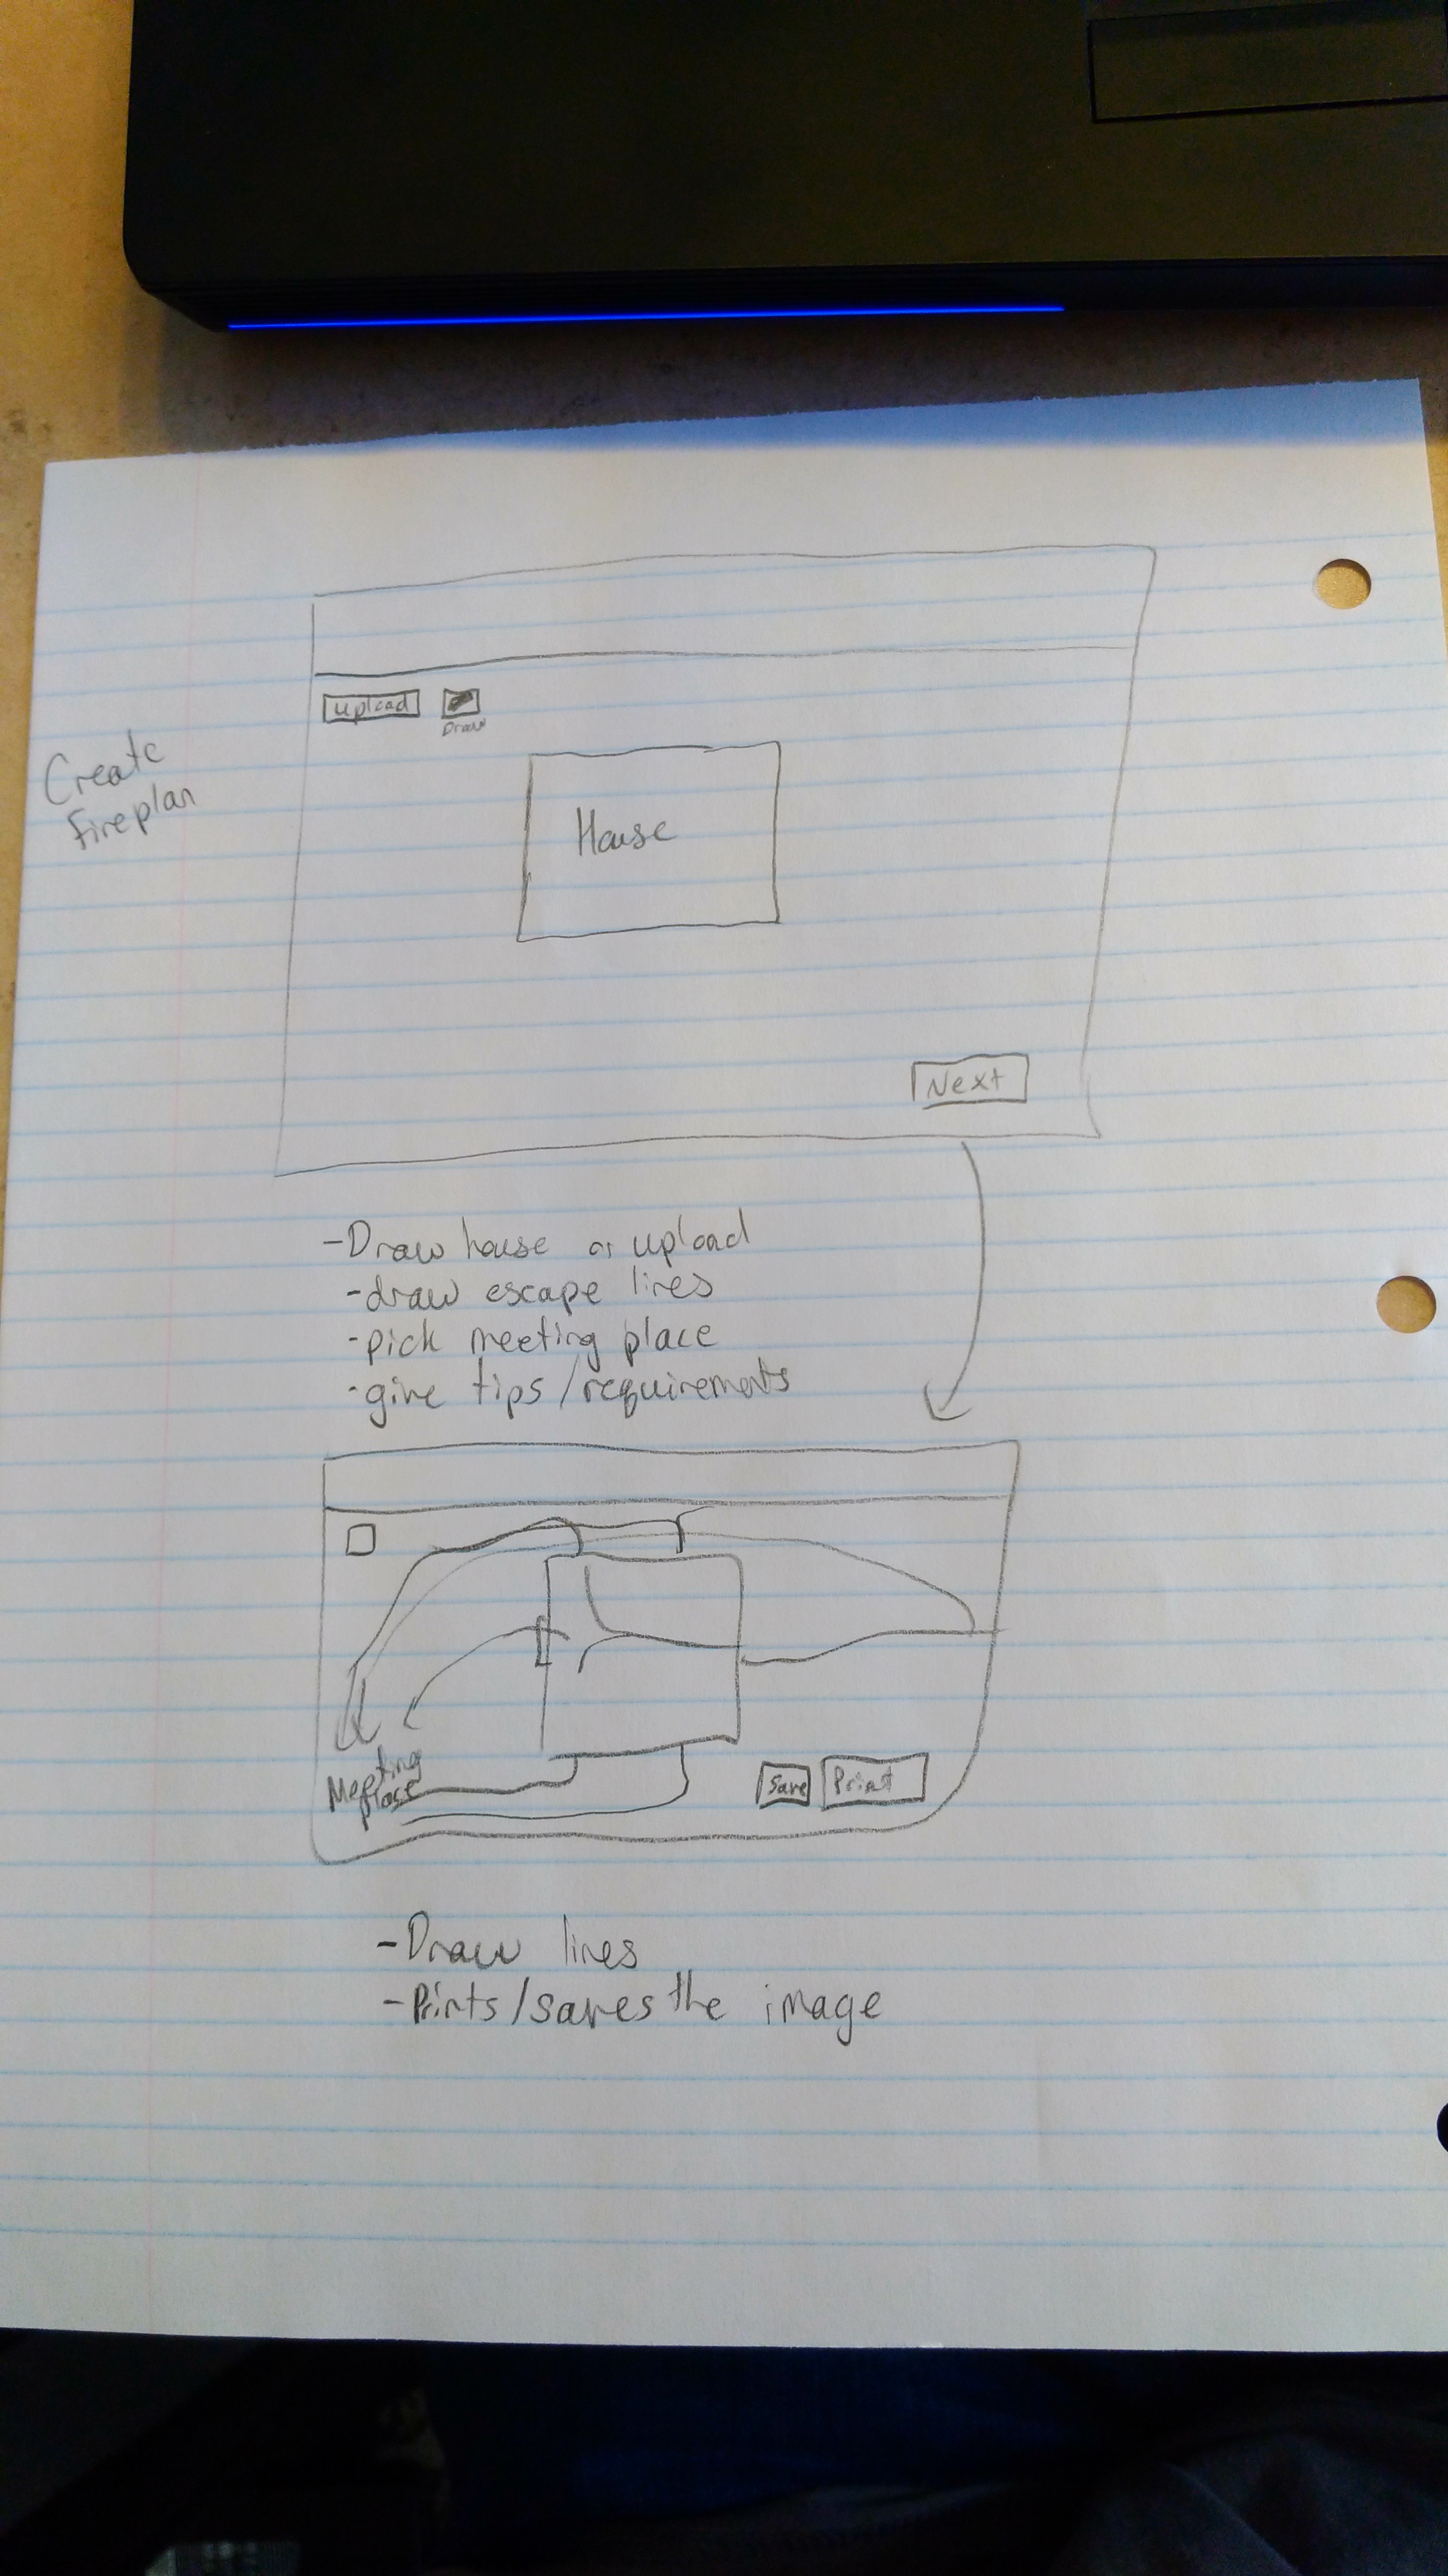 Upload
Draw
Create
fireplan
House
Next
-Draw house or upload
-draw escape lines
-pick meeting place
-give tips/requirements
Meeting
place
Save
Print
-Draw lines
-Prints/saves the image